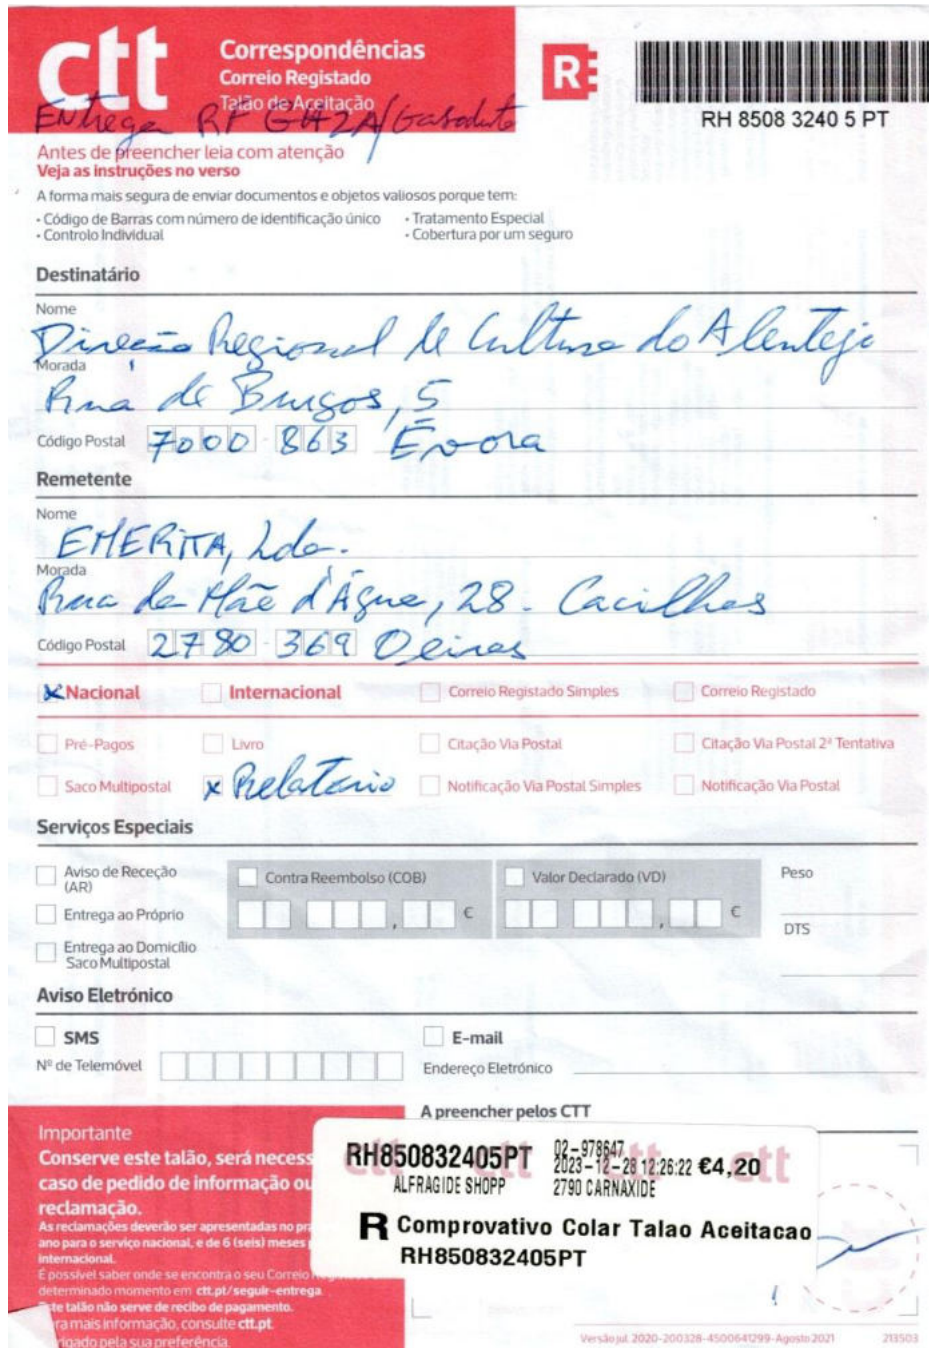 ctt
Correspondências
Correio Registado
Talão de Aceitação
R
RH 8508 3240 5 PT
Entrega RF GH2A/Gasoduto
Antes de preencher leia com atenção
Veja as instruções no verso
A forma mais segura de enviar documentos e objetos valiosos porque tem:
• Código de Barras com número de identificação único • Tratamento Especial
• Controlo Individual • Cobertura por um seguro
Destinatário
Nome
Direção Regional de Cultura do Alentejo
Morada
Rua de Burgos, 5
Código Postal 7000-863 Évora
Remetente
Nome
EMERITA, Lda.
Morada
Rua da Mãe d'Água, 28 - Cacilhas
Código Postal 2780-369 Oeiras
x Nacional Internacional Correio Registado Simples Correio Registado
Pré-Pagos Livro Citação Via Postal Citação Via Postal 2ª Tentativa
Saco Multipostal x Relatório Notificação Via Postal Simples Notificação Via Postal
Serviços Especiais
Aviso de Receção (AR) Contra Reembolso (COB) Valor Declarado (VD) Peso
Entrega ao Próprio , € , € DTS
Entrega ao Domicílio
Saco Multipostal
Aviso Eletrónico
SMS E-mail
Nº de Telemóvel Endereço Eletrónico
A preencher pelos CTT
Importante
Conserve este talão, será necess
caso de pedido de informação ou
reclamação.
As reclamações deverão ser apresentadas no pr
ano para o serviço nacional, e de 6 (seis) meses
internacional.
É possível saber onde se encontra o seu Correio
determinado momento em ctt.pt/seguir-entrega.
te talão não serve de recibo de pagamento.
ra mais informação, consulte ctt.pt.
rigado pela sua preferência.
RH850832405PT 02-978647
2023-12-28 12:26:22 €4,20
ALFRAGIDE SHOPP 2790 CARNAXIDE
R Comprovativo Colar Talao Aceitacao
RH850832405PT
Versão jul. 2020-200328-4500641299-Agosto 2021 213503